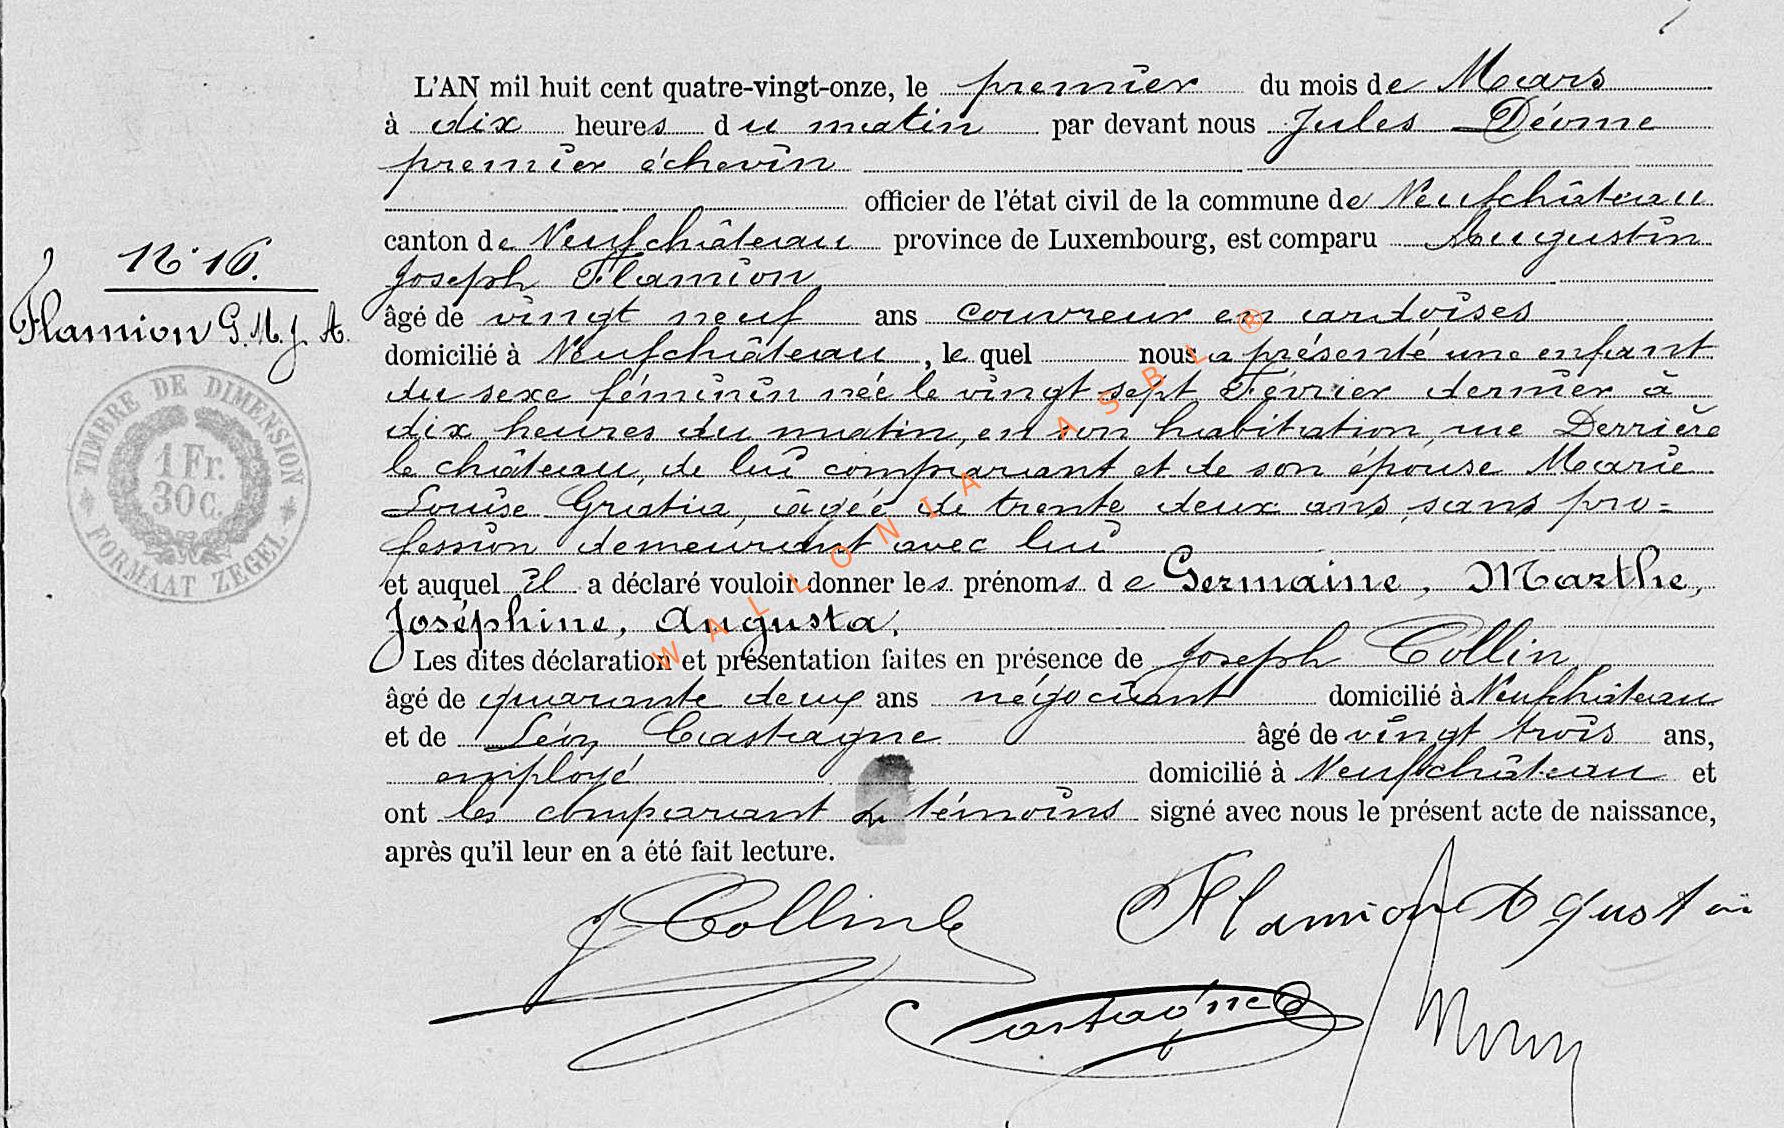 L'AN mil huit cent quatre-vingt-onze, le premier du mois de Mars
à dix heures du matin par devant nous Jules Déome
premier échevin
officier de l'état civil de la commune de Neufchâteau
canton de Neufchâteau province de Luxembourg, est comparu Augustin
Joseph Flamion
âgé de vingt neuf ans couvreur en ardoises
domicilié à Neufchâteau, lequel nous a présenté une enfant
du sexe féminin née le vingt sept Février dernier à
dix heures du matin, en son habitation, rue Derrière
le château, de lui comparant et de son épouse Marie
Louise Gratia, âgée de trente deux ans, sans pro=
fession demeurant avec lui
et auquel il a déclaré vouloir donner les prénoms de Germaine, Marthe,
Joséphine, Augusta.
Les dites déclaration et présentation faites en présence de Joseph Collin
âgé de quarante deux ans négociant domicilié à Neufchâteau
et de Léon Castagne âgé de vingt trois ans,
employé domicilié à Neufchâteau et
ont les comparant & témoins signé avec nous le présent acte de naissance,
après qu'il leur en a été fait lecture.
N° 16.
Flamion G. M. J. A.
TIMBRE DE DIMENSION
1 Fr.
30 C.
FORMAAT ZEGEL
J Collin
Flamion Agustin
Castagne
WALLONIA ASBL ®